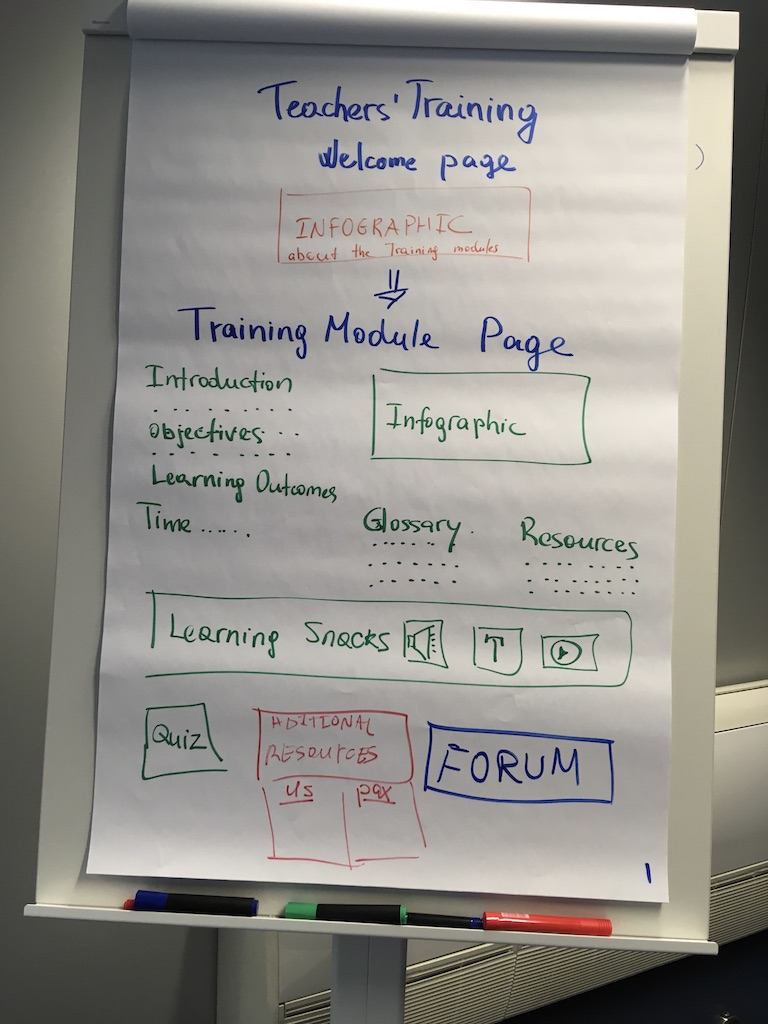 Teachers' Training
Welcome page
INFOGRAPHIC
about the Training modules
Training Module Page
Introduction
Infographic
Objectives
Learning Outcomes
Time ......
Glossary
Resources
Learning Snacks
T
Quiz
ADITIONAL
RESOURCES
us pax
FORUM
1